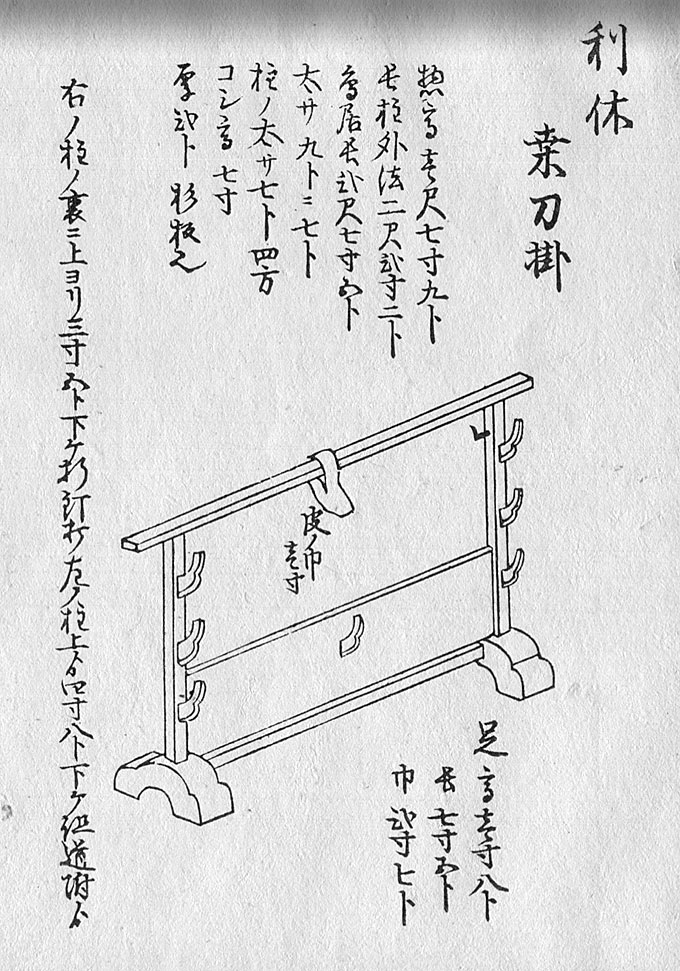 利休
桒刀掛
惣高壱尺七寸九卜
長柱外法二尺弐寸二卜
鳥居長弐尺七寸五卜
太サ九卜ニ七卜
柱ノ太サ七卜四方
コシ高七寸
厚弐卜杉板
右ノ柱ノ裏ニ上ヨリ三寸五卜下ケ折釘打左ノ柱上ゟ四寸八卜下ケ
皮ノ巾
壱寸
足高壱寸八卜
長七寸五卜
巾弐寸七卜